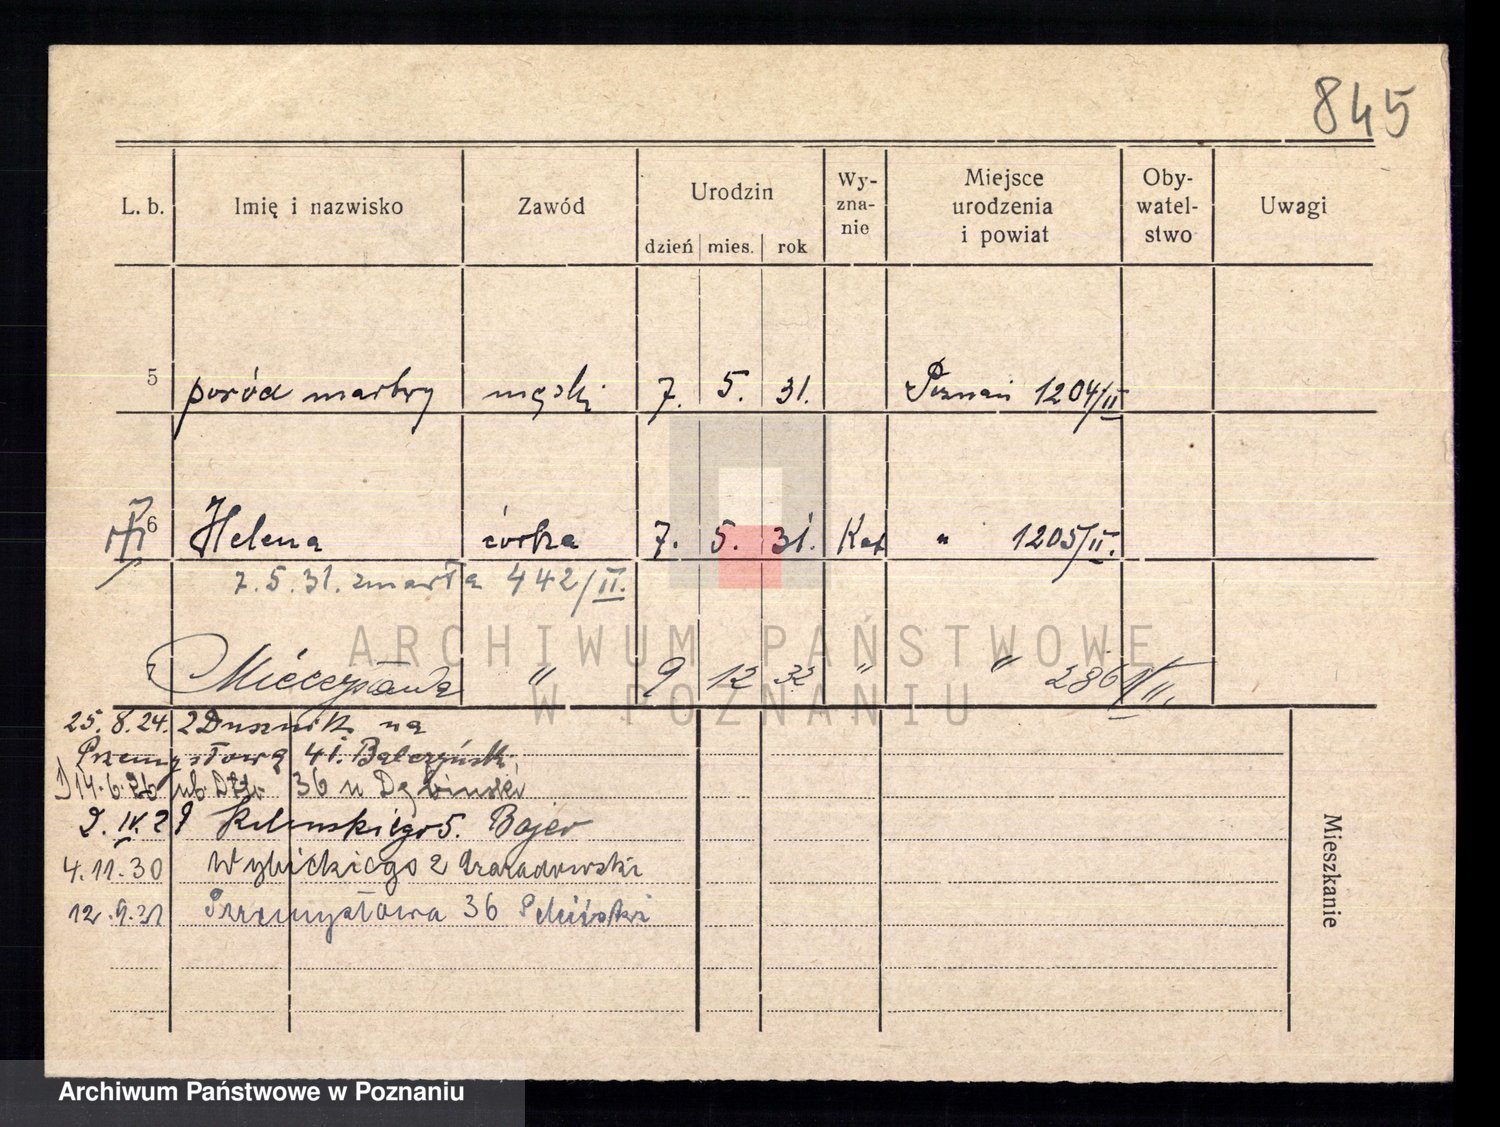 845
L. b. Imię i nazwisko Zawód Urodzin dzień mies. rok Wy-zna-nie Miejsce urodzenia i powiat Oby-watel-stwo Uwagi
5 poród martwy męski 7. 5. 31. Poznań 1204/II
6 Helena córka 7. 5. 31. Kat " 1205/II.
7.5.31. zmarła 442/II.
Mieczysława " 9 12 32 " " 286/VII.
25.8.24. z Dusznik na
Przemysłową 41. Balczyński
14.6.26 36 u Dębiński
2.IV.29 5. Bajer
4.11.30 Wybickiego 2
12.9.31 Przemysłowa 36
Mieszkanie
ARCHIWUM PAŃSTWOWE
W POZNANIU
Archiwum Państwowe w Poznaniu